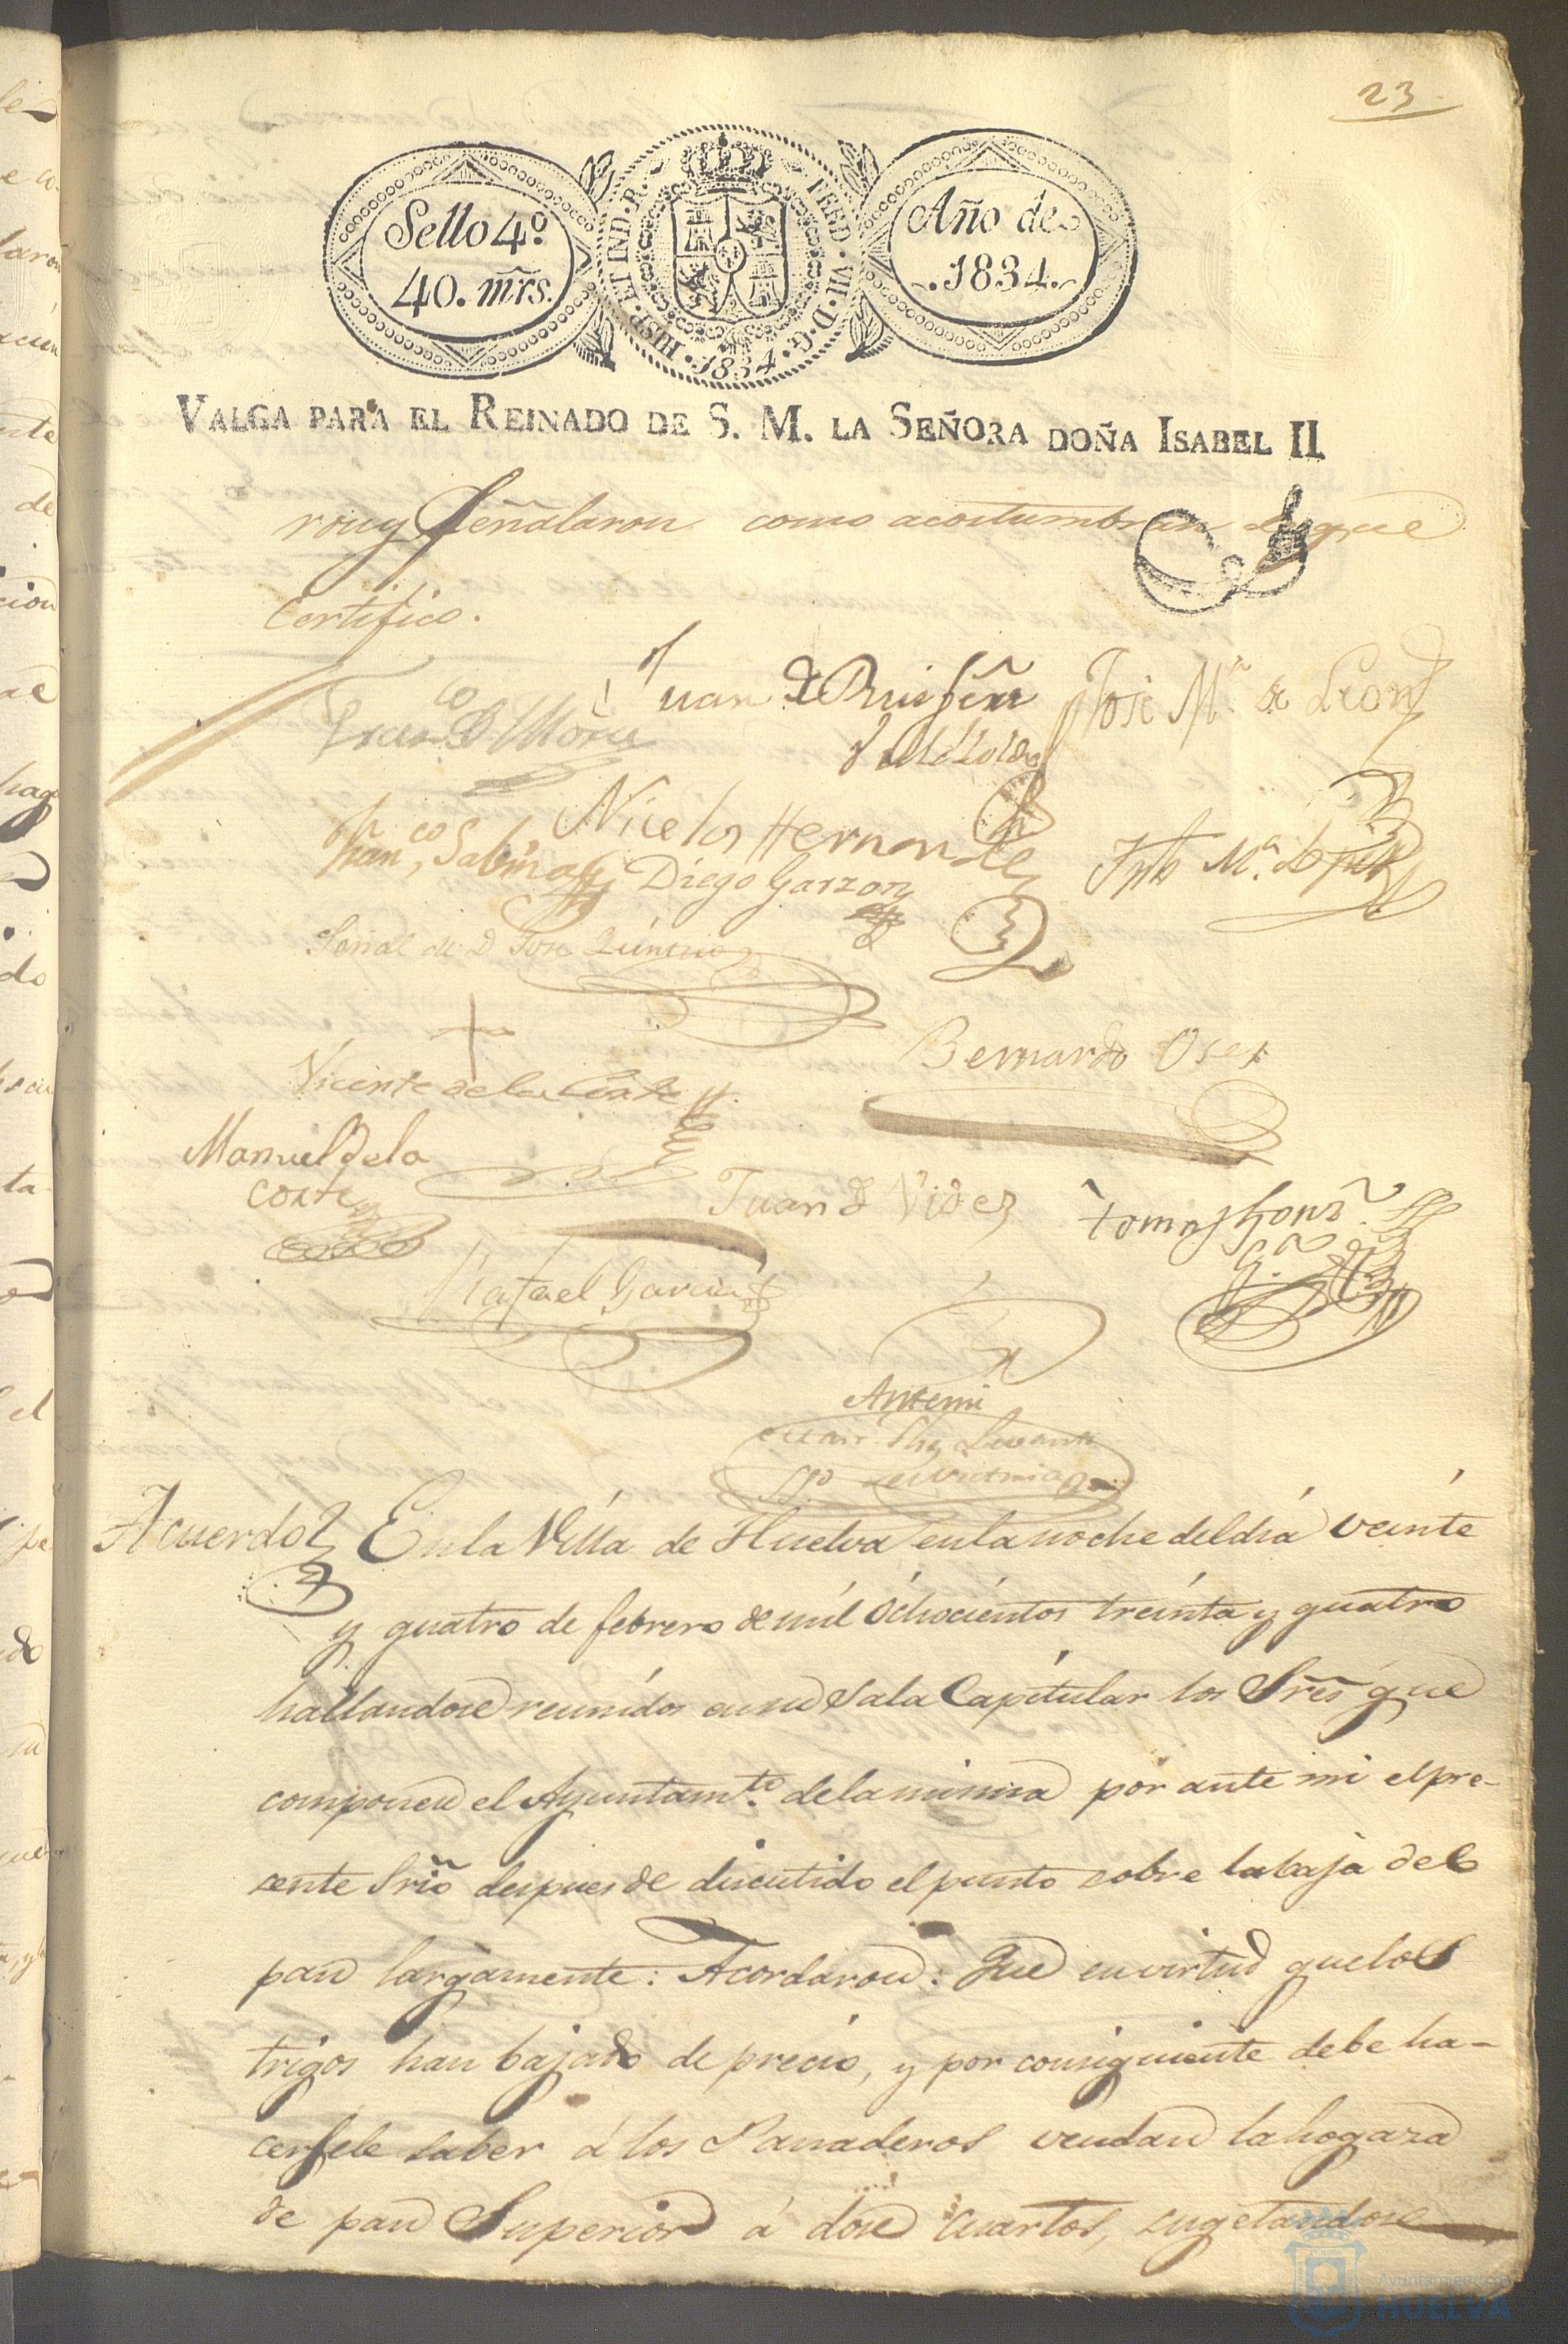 23
Sello 4º
40. mr̃s.
HISP. ET IND. R. FERD. VII. D. G. 1834.
Año de
1834.
VALGA PARA EL REINADO DE S. M. LA SEÑORA DOÑA ISABEL II
ron y señalaron como acostumbran de que
Certifico.
Juan de José Mª. de Leon
Franco. de Mora
Nicolas Hernandez
Franco. Sabino Diego Garzon Mª. Lopez
Señal de D. Jose Quintero
Bernardo
Vicente de la Corte
Manuel de la
corte
Juan de Videz
Tomas
Rafael Garcia
Antemi
Acuerdo En la Villa de Huelva en la noche del dia veinte
y quatro de febrero de mil óchocientos treinta y quatro
hallandose reunidos en su Sala Capitular los Sres que
componen el Ayuntamto. de la misma por ante mi el pre-
sente Srio despues de discutido el punto sobre la baja del
pan largamente: Acordaron: Que en virtud que los
trigos han bajado de precio, y por consiguiente debe ha-
cersele saber á los Panaderos vendan la hogaza
de pan Superior á doce cuartos, sugetandose
Ayuntamiento de
HUELVA